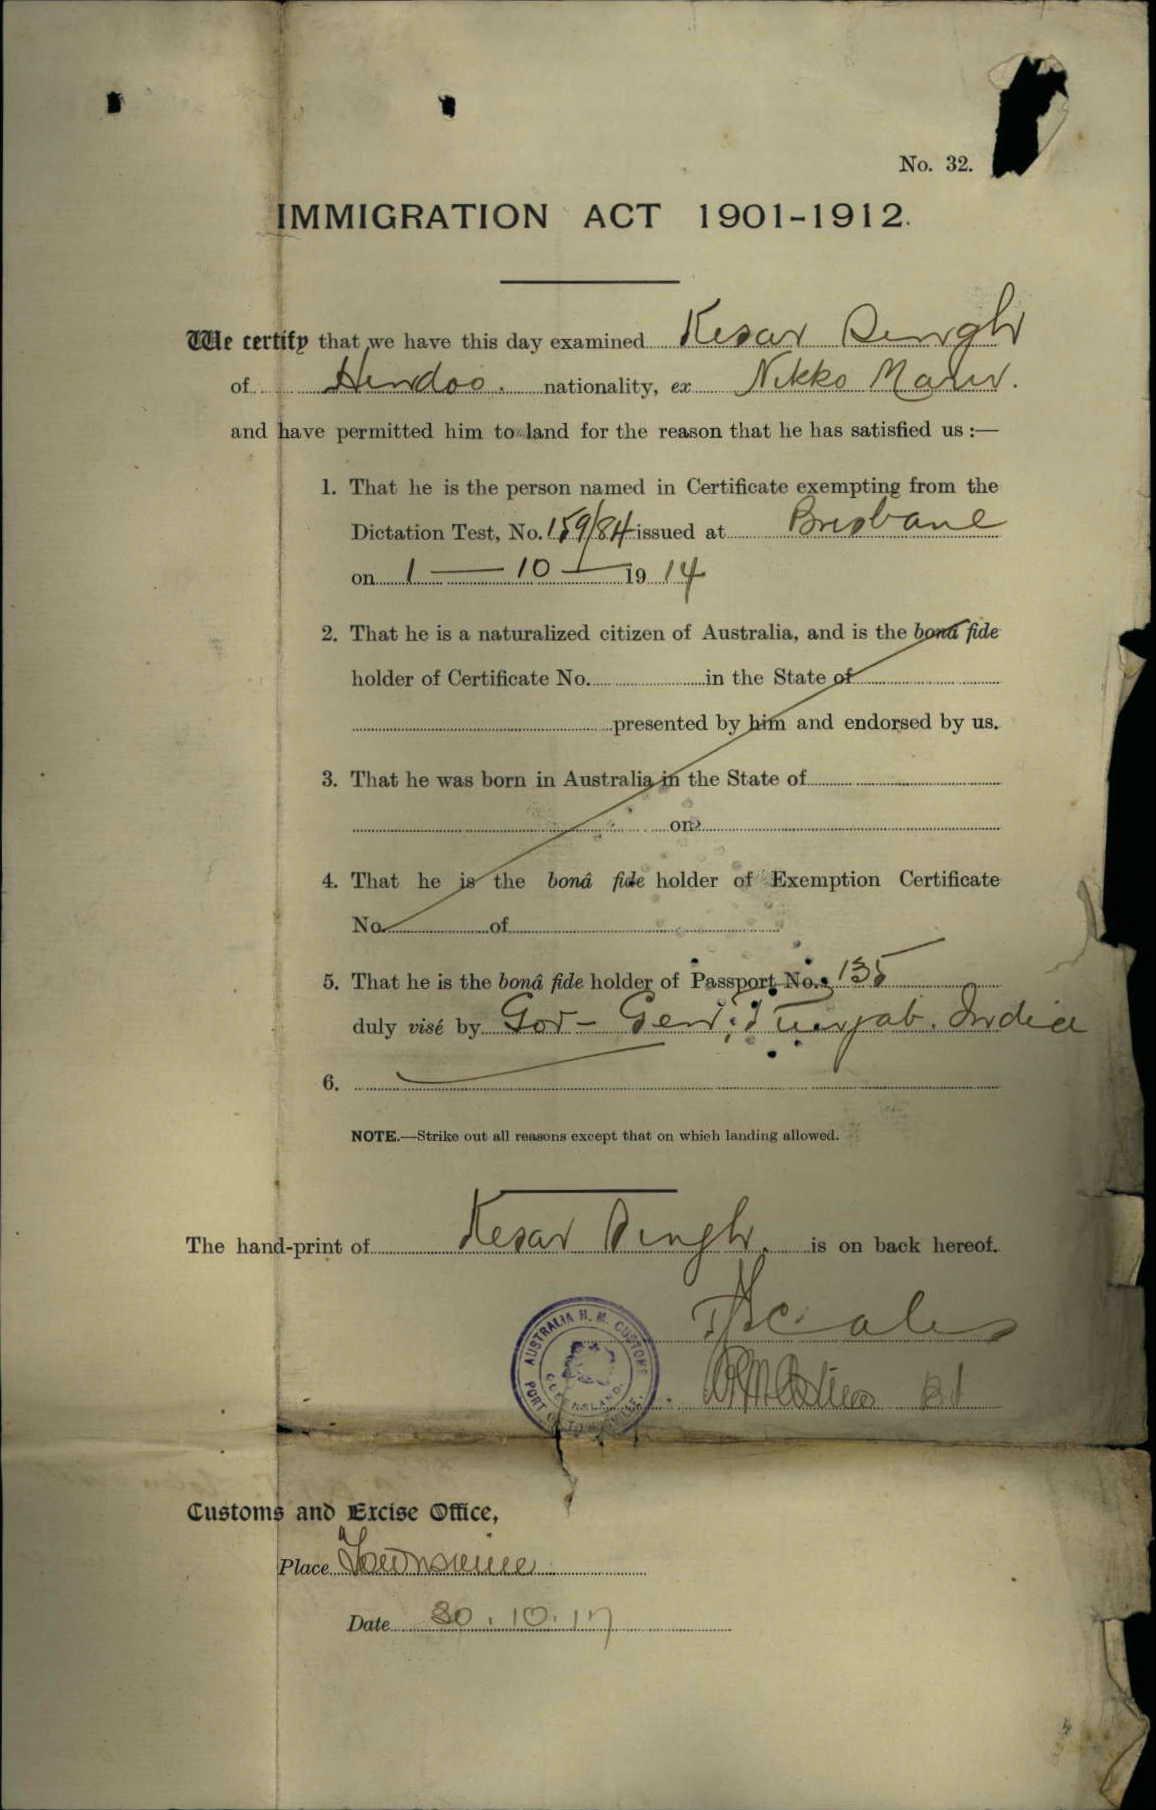 No. 32.
IMMIGRATION ACT 1901-1912.
We certify that we have this day examined Kesar Singh
of Hindoo. nationality, ex Nikko Maru.
and have permitted him to land for the reason that he has satisfied us :—
1. That he is the person named in Certificate exempting from the
Dictation Test, No. 159/84 issued at Brisbane
on 1 — 10 — 1914
2. That he is a naturalized citizen of Australia, and is the bonâ fide
holder of Certificate No. in the State of
presented by him and endorsed by us.
3. That he was born in Australia in the State of
on
4. That he is the bonâ fide holder of Exemption Certificate
No. of
5. That he is the bonâ fide holder of Passport No. 135
duly visé by Gov- Genl; Punjab. India
6.
NOTE.—Strike out all reasons except that on which landing allowed.
The hand-print of Kesar Singh. is on back hereof.
AUSTRALIA H. M. CUSTOMS
QUEENSLAND.
PORT OF TOWNSVILLE.
Customs and Excise Office,
Place Townsville
Date 30.10.17